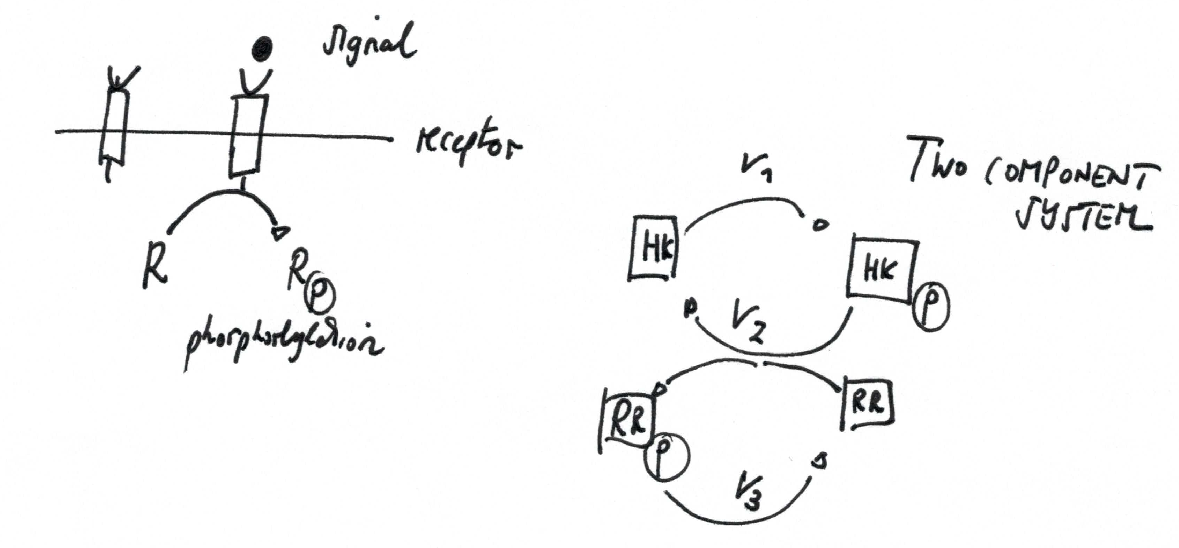 signal
receptor
R
R P
phosphorylation
TWO COMPONENT
SYSTEM
V1
HK
HK
P
V2
RR
RR
P
V3